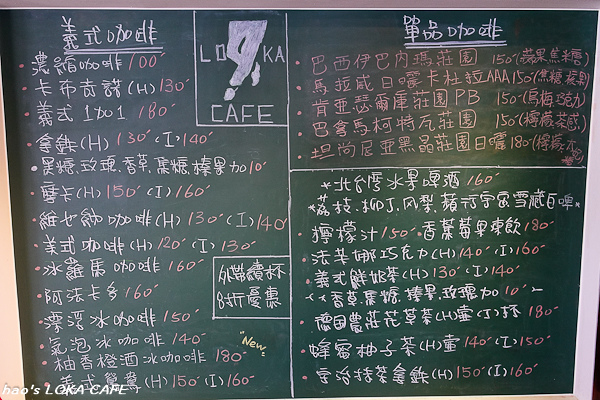 義式咖啡
·濃縮咖啡 100'
·卡布奇諾(H)130'
·義式1加1 180'
·拿鐵(H)130'(I)140'
·黑糖.玫瑰.香草.焦糖.榛果加10'
·摩卡(H)150'(I)160'
·維也納咖啡(H)130'(I)140'
·美式咖啡(H)120'(I)130'
·冰羅馬咖啡 160'
·阿法卡多160'
·漂浮冰咖啡 150'
·氣泡冰咖啡 140'
·柚香橙酒冰咖啡 180'
·義式鴛鴦(H)150'(I)160'
New
LOKA
CAFE
外帶續杯
8折優惠
單品咖啡
·巴西伊巴內瑪莊園 150'(蘋果焦糖)
·馬拉威日曬卡杜拉AAA150'(焦糖.蘋果)
·肯亞瑟爾庫莊園PB 150'(烏梅.巧克力)
·巴拿馬柯特瓦莊園 150'(檸檬茶感)
·坦尚尼亞黑晶莊園日曬180'(檸檬
*北台灣水果啤酒160'
*荔枝.柳丁.鳳梨.蘋果.雪藏白啤*
·檸檬汁150'·香蕉莓果凍飲180'
·法芙娜巧克力(H)140'(I)160'
·義式鮮奶茶(H)130'(I)140'
香草.焦糖.榛果.玫瑰加10'
·德國農莊花草茶(H)壺(I)杯 180'
·蜂蜜柚子茶(H)壺 140'(I)150'
·宇治抹茶拿鐵(H)150'(I)160'
hao's LOKA CAFE